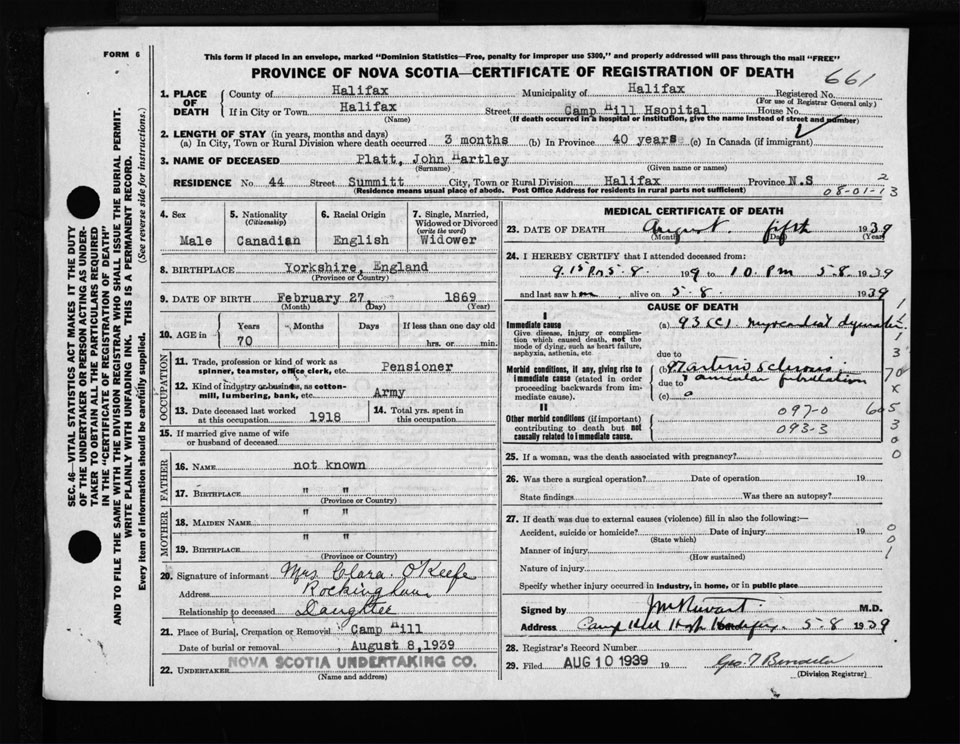 FORM 6
This form if placed in an envelope, marked "Dominion Statistics—Free, penalty for improper use $300," and properly addressed will pass through the mail "FREE"
PROVINCE OF NOVA SCOTIA—CERTIFICATE OF REGISTRATION OF DEATH
661
SEC. 46—VITAL STATISTICS ACT MAKES IT THE DUTY
OF THE UNDERTAKER OR PERSON ACTING AS UNDER-
TAKER TO OBTAIN ALL THE PARTICULARS REQUIRED
IN THE "CERTIFICATE OF REGISTRATION OF DEATH"
AND TO FILE THE SAME WITH THE DIVISION REGISTRAR WHO SHALL ISSUE THE BURIAL PERMIT.
WRITE PLAINLY WITH UNFADING INK. THIS IS A PERMANENT RECORD.
Every item of information should be carefully supplied. (See reverse side for instructions.)
1. PLACE OF DEATH County of Halifax Municipality of Halifax Registered No.
(For use of Registrar General only)
If in City or Town Halifax Street Camp Hill Hsopital House No.
(Name) (If death occurred in a hospital or institution, give the name instead of street and number)
2. LENGTH OF STAY (in years, months and days)
(a) In City, Town or Rural Division where death occurred 3 months (b) In Province 40 years (c) In Canada (if immigrant)
3. NAME OF DECEASED Platt, John Hartley
(Surname) (Given name or names)
RESIDENCE No. 44 Street Summitt City, Town or Rural Division Halifax Province N.S
(Residence means usual place of abode. Post Office Address for residents in rural parts not sufficient)
2
08-01-13
4. Sex Male
5. Nationality (Citizenship) Canadian
6. Racial Origin English
7. Single, Married, Widowed or Divorced (write the word) Widower
8. BIRTHPLACE Yorkshire, England
(Province or Country)
9. DATE OF BIRTH February 27, 1869
(Month) (Day) (Year)
10. AGE in Years Months Days If less than one day old
70 hrs. or min.
OCCUPATION
11. Trade, profession or kind of work as spinner, teamster, office clerk, etc. Pensioner
12. Kind of industry or business, as cotton-mill, lumbering, bank, etc. Army
13. Date deceased last worked at this occupation 1918
14. Total yrs. spent in this occupation
15. If married give name of wife or husband of deceased
FATHER
16. NAME not known
17. BIRTHPLACE " "
(Province or Country)
MOTHER
18. MAIDEN NAME " "
19. BIRTHPLACE " "
(Province or Country)
20. Signature of informant Mrs Clara O'Keefe
Address Rockingham
Relationship to deceased Daughter
21. Place of Burial, Cremation or Removal Camp Hill
Date of burial or removal August 8, 1939
22. UNDERTAKER NOVA SCOTIA UNDERTAKING CO.
(Name and address)
MEDICAL CERTIFICATE OF DEATH
23. DATE OF DEATH August fifth 1939
(Month) (Day) (Year)
24. I HEREBY CERTIFY that I attended deceased from:
5-8 to 10 pm 5-8 1939
and last saw him alive on 5-8 1939
CAUSE OF DEATH
I
Immediate cause
Give disease, injury or complication which caused death, not the mode of dying, such as heart failure, asphyxia, asthenia, etc
(a) 93 (c) myocardial
due to
Morbid conditions, if any, giving rise to immediate cause (stated in order proceeding backwards from immediate cause).
(b) Sclerosis
due to auricular fibrillation
(c)
II
Other morbid conditions (if important) contributing to death but not causally related to immediate cause.
097-0
093-3
25. If a woman, was the death associated with pregnancy?
26. Was there a surgical operation? Date of operation 19
State findings Was there an autopsy?
27. If death was due to external causes (violence) fill in also the following:—
Accident, suicide or homicide? Date of injury 19
(State which)
Manner of injury
(How sustained)
Nature of injury
Specify whether injury occurred in industry, in home, or in public place
Signed by M.D.
Address Camp Hill Hosp Halifax. 5-8 1939
28. Registrar's Record Number
29. Filed AUG 10 1939 19
(Division Registrar)